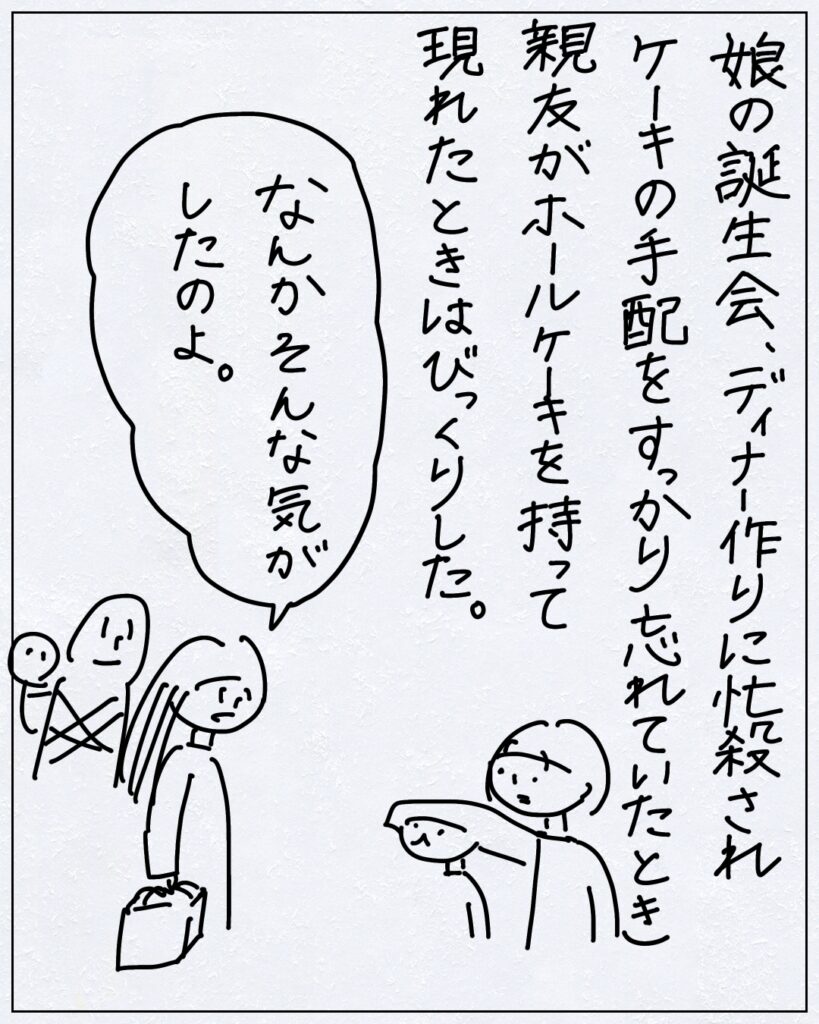 娘の誕生会、ディナー作りに忙殺され
ケーキの手配をすっかり忘れていたとき、
親友がホールケーキを持って
現れたときはびっくりした。
なんかそんな気が
したのよ。